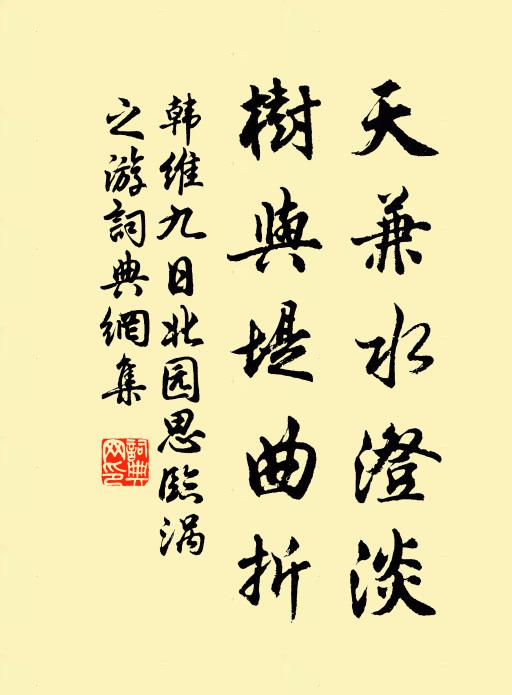 天兼水澄淡
樹與堤曲折
韩維九日北园思臨涡
之游詞典網集
詞典网印